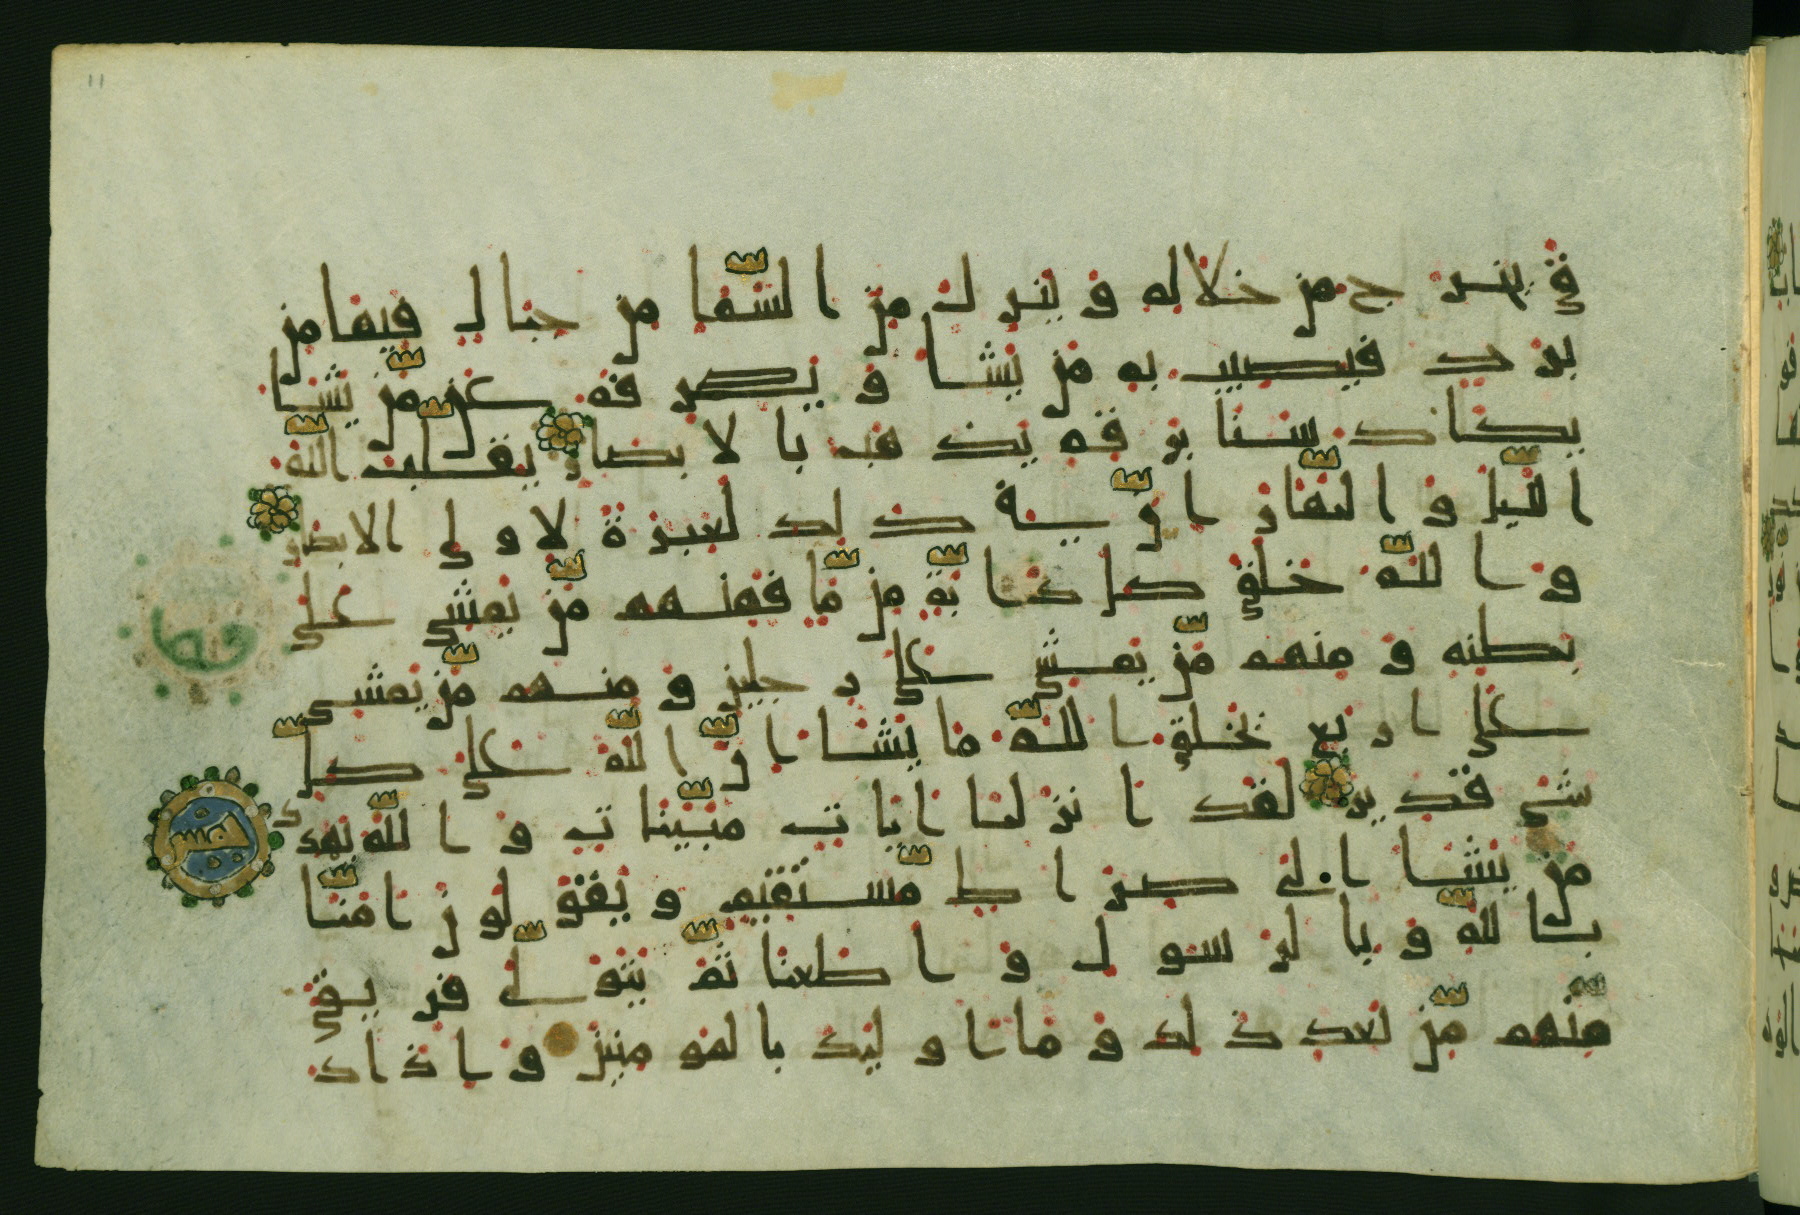 ق يخرج من خلاله و ينزل من السما من جبال فيها من
برد فيصيب به من يشا و يصرفه عن من يشا
يكاد سنا برقه يذهب بالابصار يقلب الله
الليل و النهار ان في ذلك لعبرة لاولي الابصار
و الله خلق كل دابة من ما فمنهم من يمشي على
بطنه و منهم من يمشي على رجلين و منهم من يمشي
على اربع يخلق الله ما يشا ان الله على كل
شي قدير لقد انزلنا ايات مبينات و الله يهد
ي من يشا الى صراط مستقيم و يقولون امنا
بالله و بالرسول و اطعنا ثم يتولى فريق
منهم من بعد ذلك و ما اوليك بالمومنين و اذا د
خمس
11